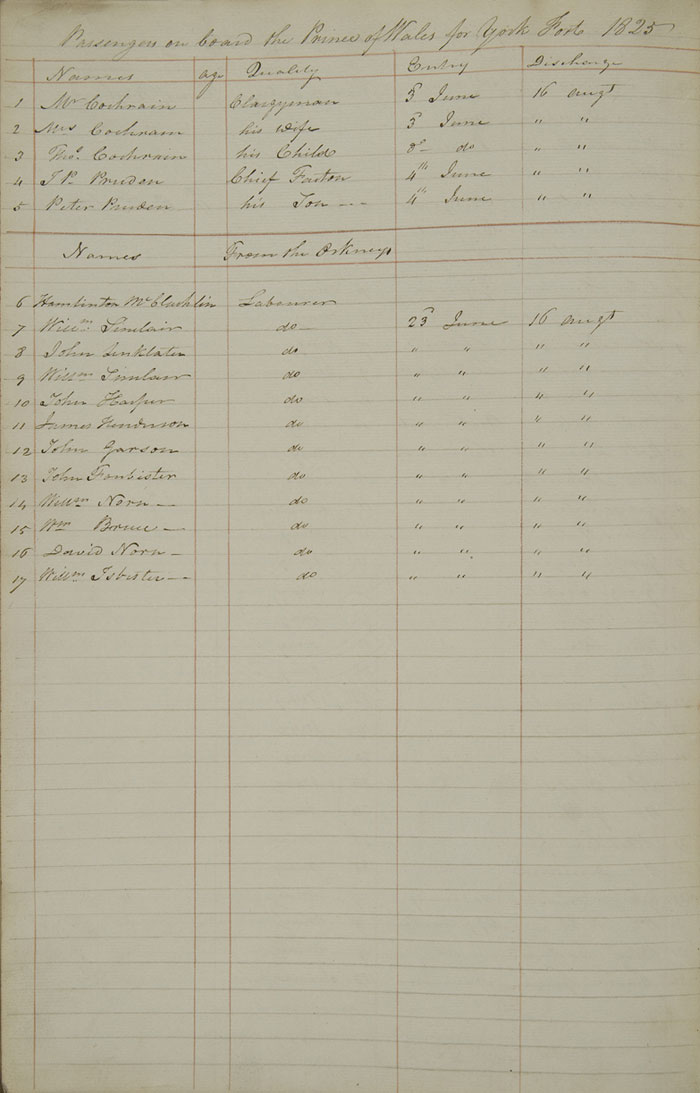 Passengers on board the Prince of Wales for York Fort 1825
Names age Quality Entry Discharge
1 Mr Cochrain Clargyman 3d June 16 augt
2 Mrs Cochrain his Wife 3d June " "
3 Thos. Cochrain his Child do do " "
4 J P. Pruden Chief Factor 4th June " "
5 Peter Pruden his Son 4th June " "
Names From the Orkneys
6 Hamlinton McClachlin Labourer
7 Willm Sinclair do 23d June 16 augt
8 John Linklater do " " " "
9 Willm Sinclair do " " " "
10 John Harper do " " " "
11 James Henderson do " " " "
12 John Garson do " " " "
13 John Foubister do " " " "
14 Willm Norn do " " " "
15 Wm Bruce do " " " "
16 David Norn do " " " "
17 Willm Isbister do " " " "